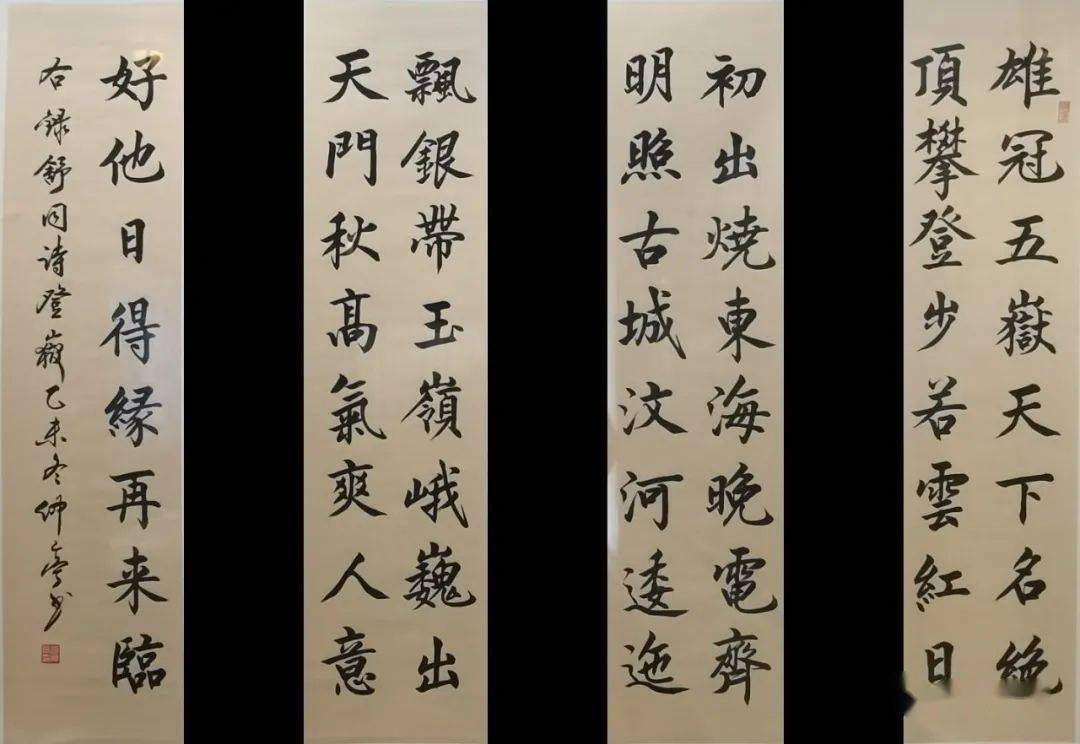 雄冠五嶽天下名絶
頂攀登步若雲紅日
初出燒東海晚電齊
明照古城汶河逶迤
飄銀帶玉嶺峨巍出
天門秋高氣爽人意
好他日得緣再来臨
右録舒同诗登嶽乙未冬仲亭书